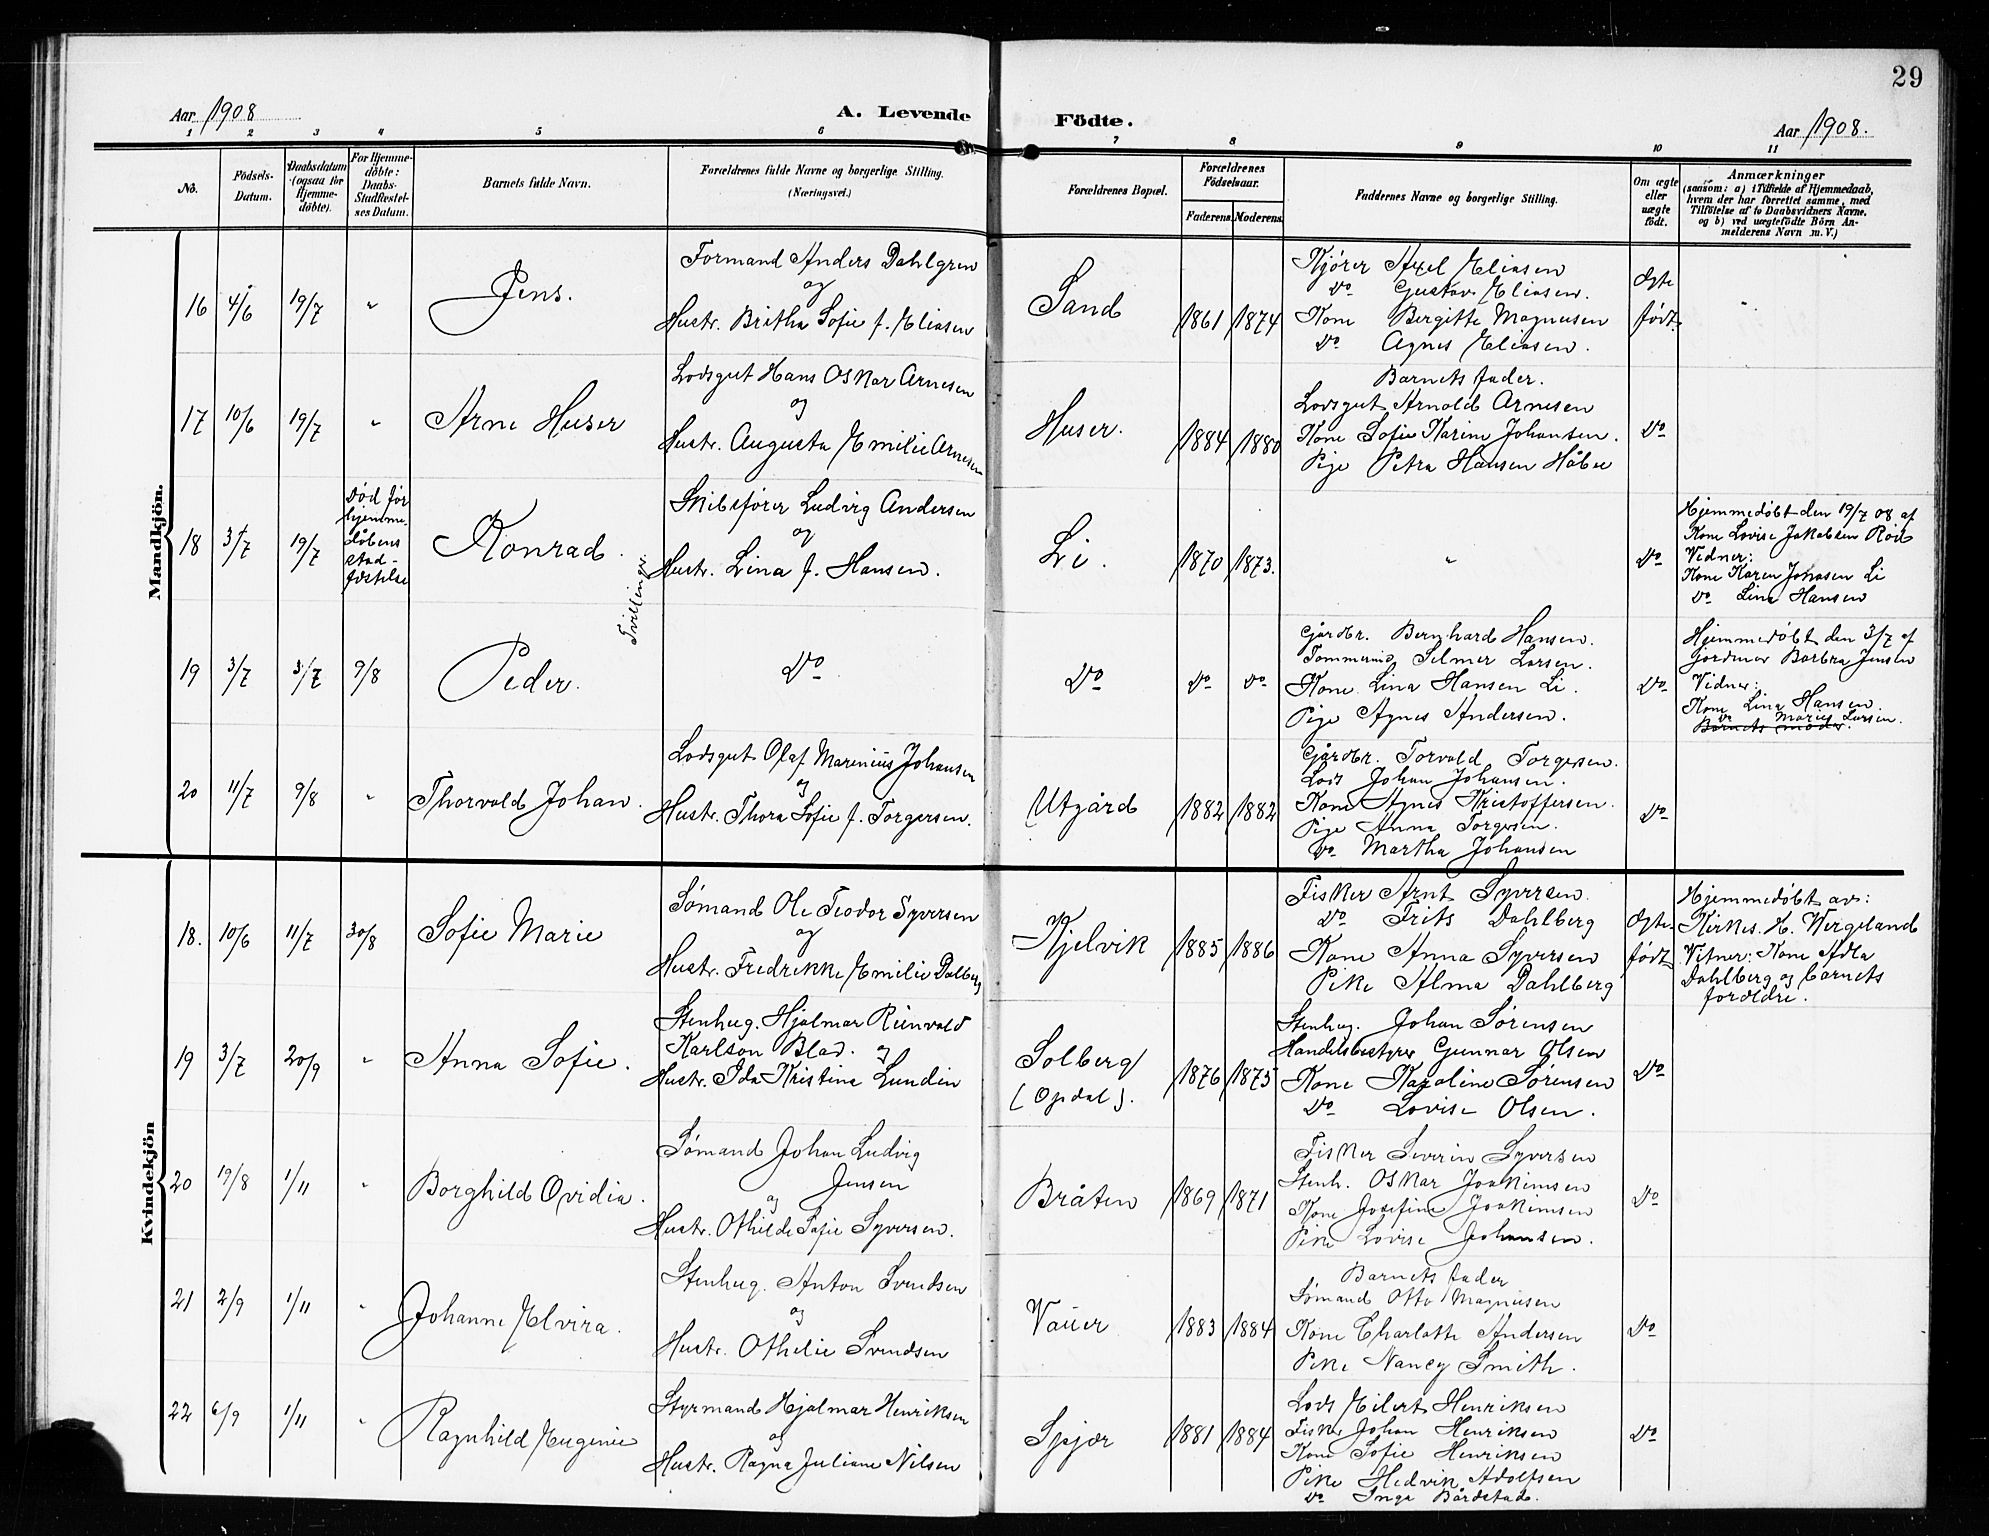 29
Aar 1908
A. Levende Födte.
Aar 1908.
1 2 3 4 5 6 7 8 9 10 11
No.
Födsels-Datum.
Daabsdatum (ogsaa for Hjemme-döbte).
For Hjemme-döbte: Daabs-Stadfæstel-ses Datum.
Barnets fulde Navn.
Forældrenes fulde Navne og borgerlige Stilling. (Næringsvei.)
Forældrenes Bopæl.
Forældrenes Födselsaar.
Faderens. Moderens.
Faddernes Navne og borgerlige Stilling.
Om ægte eller uægte födt.
Anmærkninger
(saasom: a) i Tilfælde af Hjemmedaab,
hvem der har forrettet samme, med
Tilföielse af to Daabsvidners Navne,
og b) ved uægtefödte Börn An-
melderens Navn m. V.)
Mandkjön.
16 4/6 19/7 " Jens.
Formand Anders Dahlgren
og
Hustr. Britha Sofie f. Eliasen
Sand 1861 1874
Kjører Axel Eliasen
Do Gustav Eliasen.
Kone Bergitte Magnusen
Do Agnes Eliasen.
Ægte født. "
17 10/6 19/7 " Arne Huser
Lodsgut Hans Oskar Arnesen
og
Hustr. Augusta Emilie Arnesen
Huser. 1884 1880
Barnets fader.
Lodsgut Arnold Arnesen
Kone Sofie Karine Johansen.
Pige Petra Hansen Håbu
Do
18 3/7 19/7
Død før
hjemme-
døbens
stad-
fæstelse
Konrad.
Tvillinger.
Skibsfører Ludvig Andersen
og
Hustr. Lina f. Hansen.
Li. 1870 1873. " Do
Hjemmedøbt den 19/7 08 af
Kone Lovise Jakobsen Röd
Vidner:
Kone Karen Jonasen Li
Do Lina Hansen
19 3/7 3/7 9/8 Peder. Do Do Do Do
Gårdbr. Bernhard Hansen.
Tømmermd Selmer Larsen.
Kone Lina Hansen Li.
Pige Agnes Andersen.
Do
Hjemmedøbt den 3/7 af
jordmor Barbra Jensen
Vidner:
Kone Lina Hansen.
Do Marie Larsen.
Barnets moder.
20 11/7 9/8 " Thorvald Johan.
Lodsgut Olaf Marinius Johansen
og
Hustr. Thora Sofie f. Torgersen.
Utgård 1882 1882
Gårdbr. Torvald Torgersen.
Lods Johan Johansen.
Kone Agnes Kristoffersen.
Pige Anna Torgersen.
Do Martha Johansen
Do
Kvindekjön
18. 10/6 11/7 30/8 Sofie Marie
Sømand Ole Teodor Syversen
og
Hustr. Fredrikke Emilie Dalberg
Kjelvik 1885 1886
Fisker Arnt Syversen
Do Frits Dahlberg
Kone Anna Syversen
Pike Alma Dahlberg
Ægte født
Hjemmedøbt av:
Kirkes. H. Wergeland
Vitner: Kone Adla
Dahlberg og barnets
foreldre.
19 3/7 20/9 " Anna Sofie.
Stenhug. Hjalmar Reinvald
Karlson Blad. og
Hustr. Ida Kristina Lundin
Solberg
(Opdal). 1876 1875
Stenhug. Johan Sørensen
Handelsbestyrer Gunnar Olsen
Kone Karoline Sørensen
Do Lovise Olsen.
Do
20 19/8 1/11 " Borghild Ovidia.
Sømand Johan Ludvig
Jensen
og
Hustr. Othilde Sofie Syversen.
Bråten 1869 1871
Fisker Severin Syversen
Stenh. Oskar Joakimsen
Kone Josefine Joakimsen
Pike Lovise Johansen.
Do
21 2/9 1/11 " Johanne Elvira.
Stenhug. Anton Svendsen
og
Hustr. Othelie Svendsen
Vauer 1883 1884
Barnets fader
Sømand Otto Magnusen
Kone Charlotte Andersen
Pike Nancy Smith.
Do
22 6/9 1/11 " Ragnhild Eugenie
Styrmand Hjalmar Henriksen
og
Hustr. Ragna Juliane Nilsen
Spjær 1881 1884
Lods Eilert Henriksen
Fisker Johan Henriksen
Kone Sofie Henriksen
Pike Hedvik Adolfsen
Do Inga Bårdstad.
Do